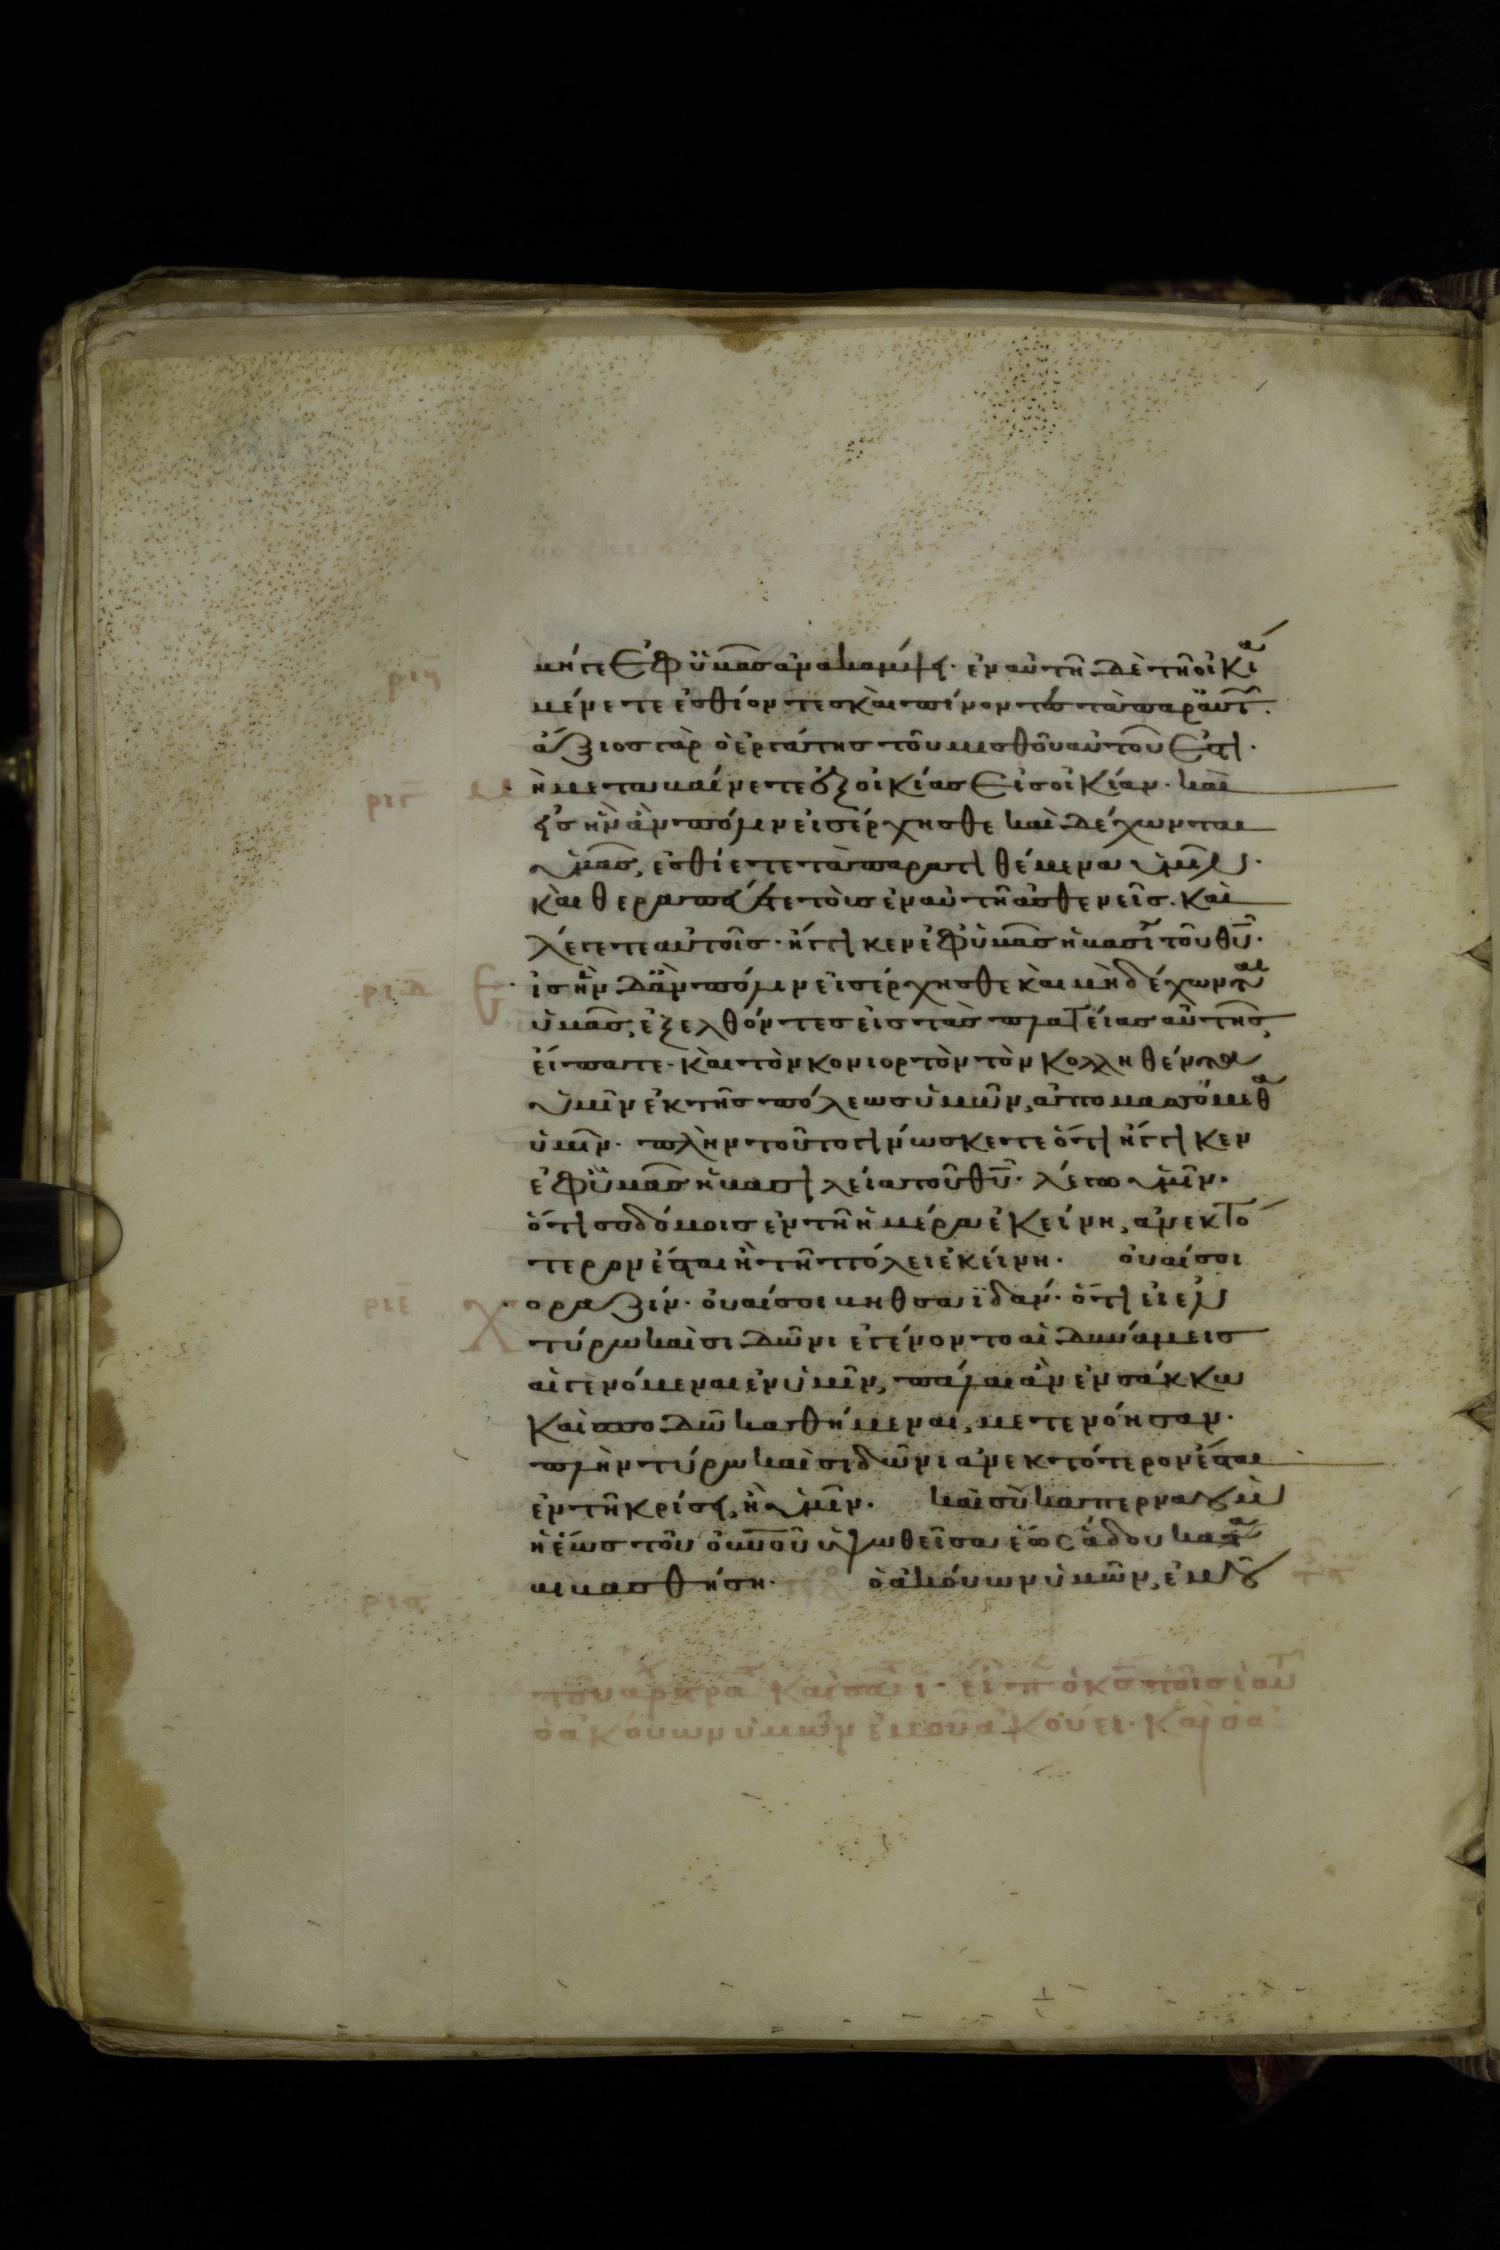 μήτε ἐφ ὑμᾶς ἀνακάμψει· ἐν αὐτῇ δὲ τῇ οἰκί
μένετε ἐσθίοντες καὶ πίνοντες τὰ παρ αὐτ
ἄξιος γὰρ ὁ ἐργάτης τοῦ μισθοῦ αὐτοῦ ἐστι·
ριγ μὴ μεταβαίνετε ἐξ οἰκίας εἰς οἰκίαν· καὶ
εἰς ἣν ἂν πόλιν εἰσέρχησθε καὶ δέχωνται
ὑμᾶς, ἐσθίετε τὰ παρατιθέμενα ὑμῖν·
καὶ θεραπεύετε τοὺς ἐν αὐτῇ ἀσθενεῖς· καὶ
λέγετε αὐτοῖς· ἤγγικεν ἐφ ὑμᾶς ἡ βασι τοῦ θυ·
ριδ εἰς ἣν δ ἂν πόλιν εἰσέρχησθε καὶ μὴ δέχωνται
ὑμᾶς, ἐξελθόντες εἰς τὰς πλατείας αὐτῆς,
εἴπατε· καὶ τὸν κονιορτὸν τὸν κολληθέντα
ὑμῖν ἐκ τῆς πόλεως ὑμῶν, ἀπομασσόμεθα
ὑμῖν· πλὴν τοῦτο γινώσκετε ὅτι ἤγγικεν
ἐφ ὑμᾶς ἡ βασιλεία τοῦ θυ· λέγω ὑμῖν·
ὅτι σοδόμοις ἐν τῇ ἡμέρα ἐκείνη, ἀνεκτό
τερον ἔσται ἢ τῇ πόλει ἐκείνη· οὐαί σοι
ριε χοραζίν· οὐαί σοι βηθσαϊδάν· ὅτι εἰ ἐν
τύρω καὶ σιδῶνι ἐγένοντο αἱ δυνάμεις
αἱ γενόμεναι ἐν ὑμῖν, πάλαι ἂν ἐν σάκκω
καὶ σποδῶ καθήμεναι, μετενόησαν·
πλὴν τύρω καὶ σιδῶνι ἀνεκτότερον ἔσται
ἐν τῇ κρίσει, ἢ ὑμῖν· καὶ σὺ καπερναοὺμ
ἡ ἕως τοῦ οὐνοῦ ὑψωθεῖσα ἕως ἅδου κατα
βιβασθήση· ὁ ἀκούων ὑμῶν, ἐμοῦ
ὁ ἀκούων ὑμῶν ἐμοῦ ἀκούει·